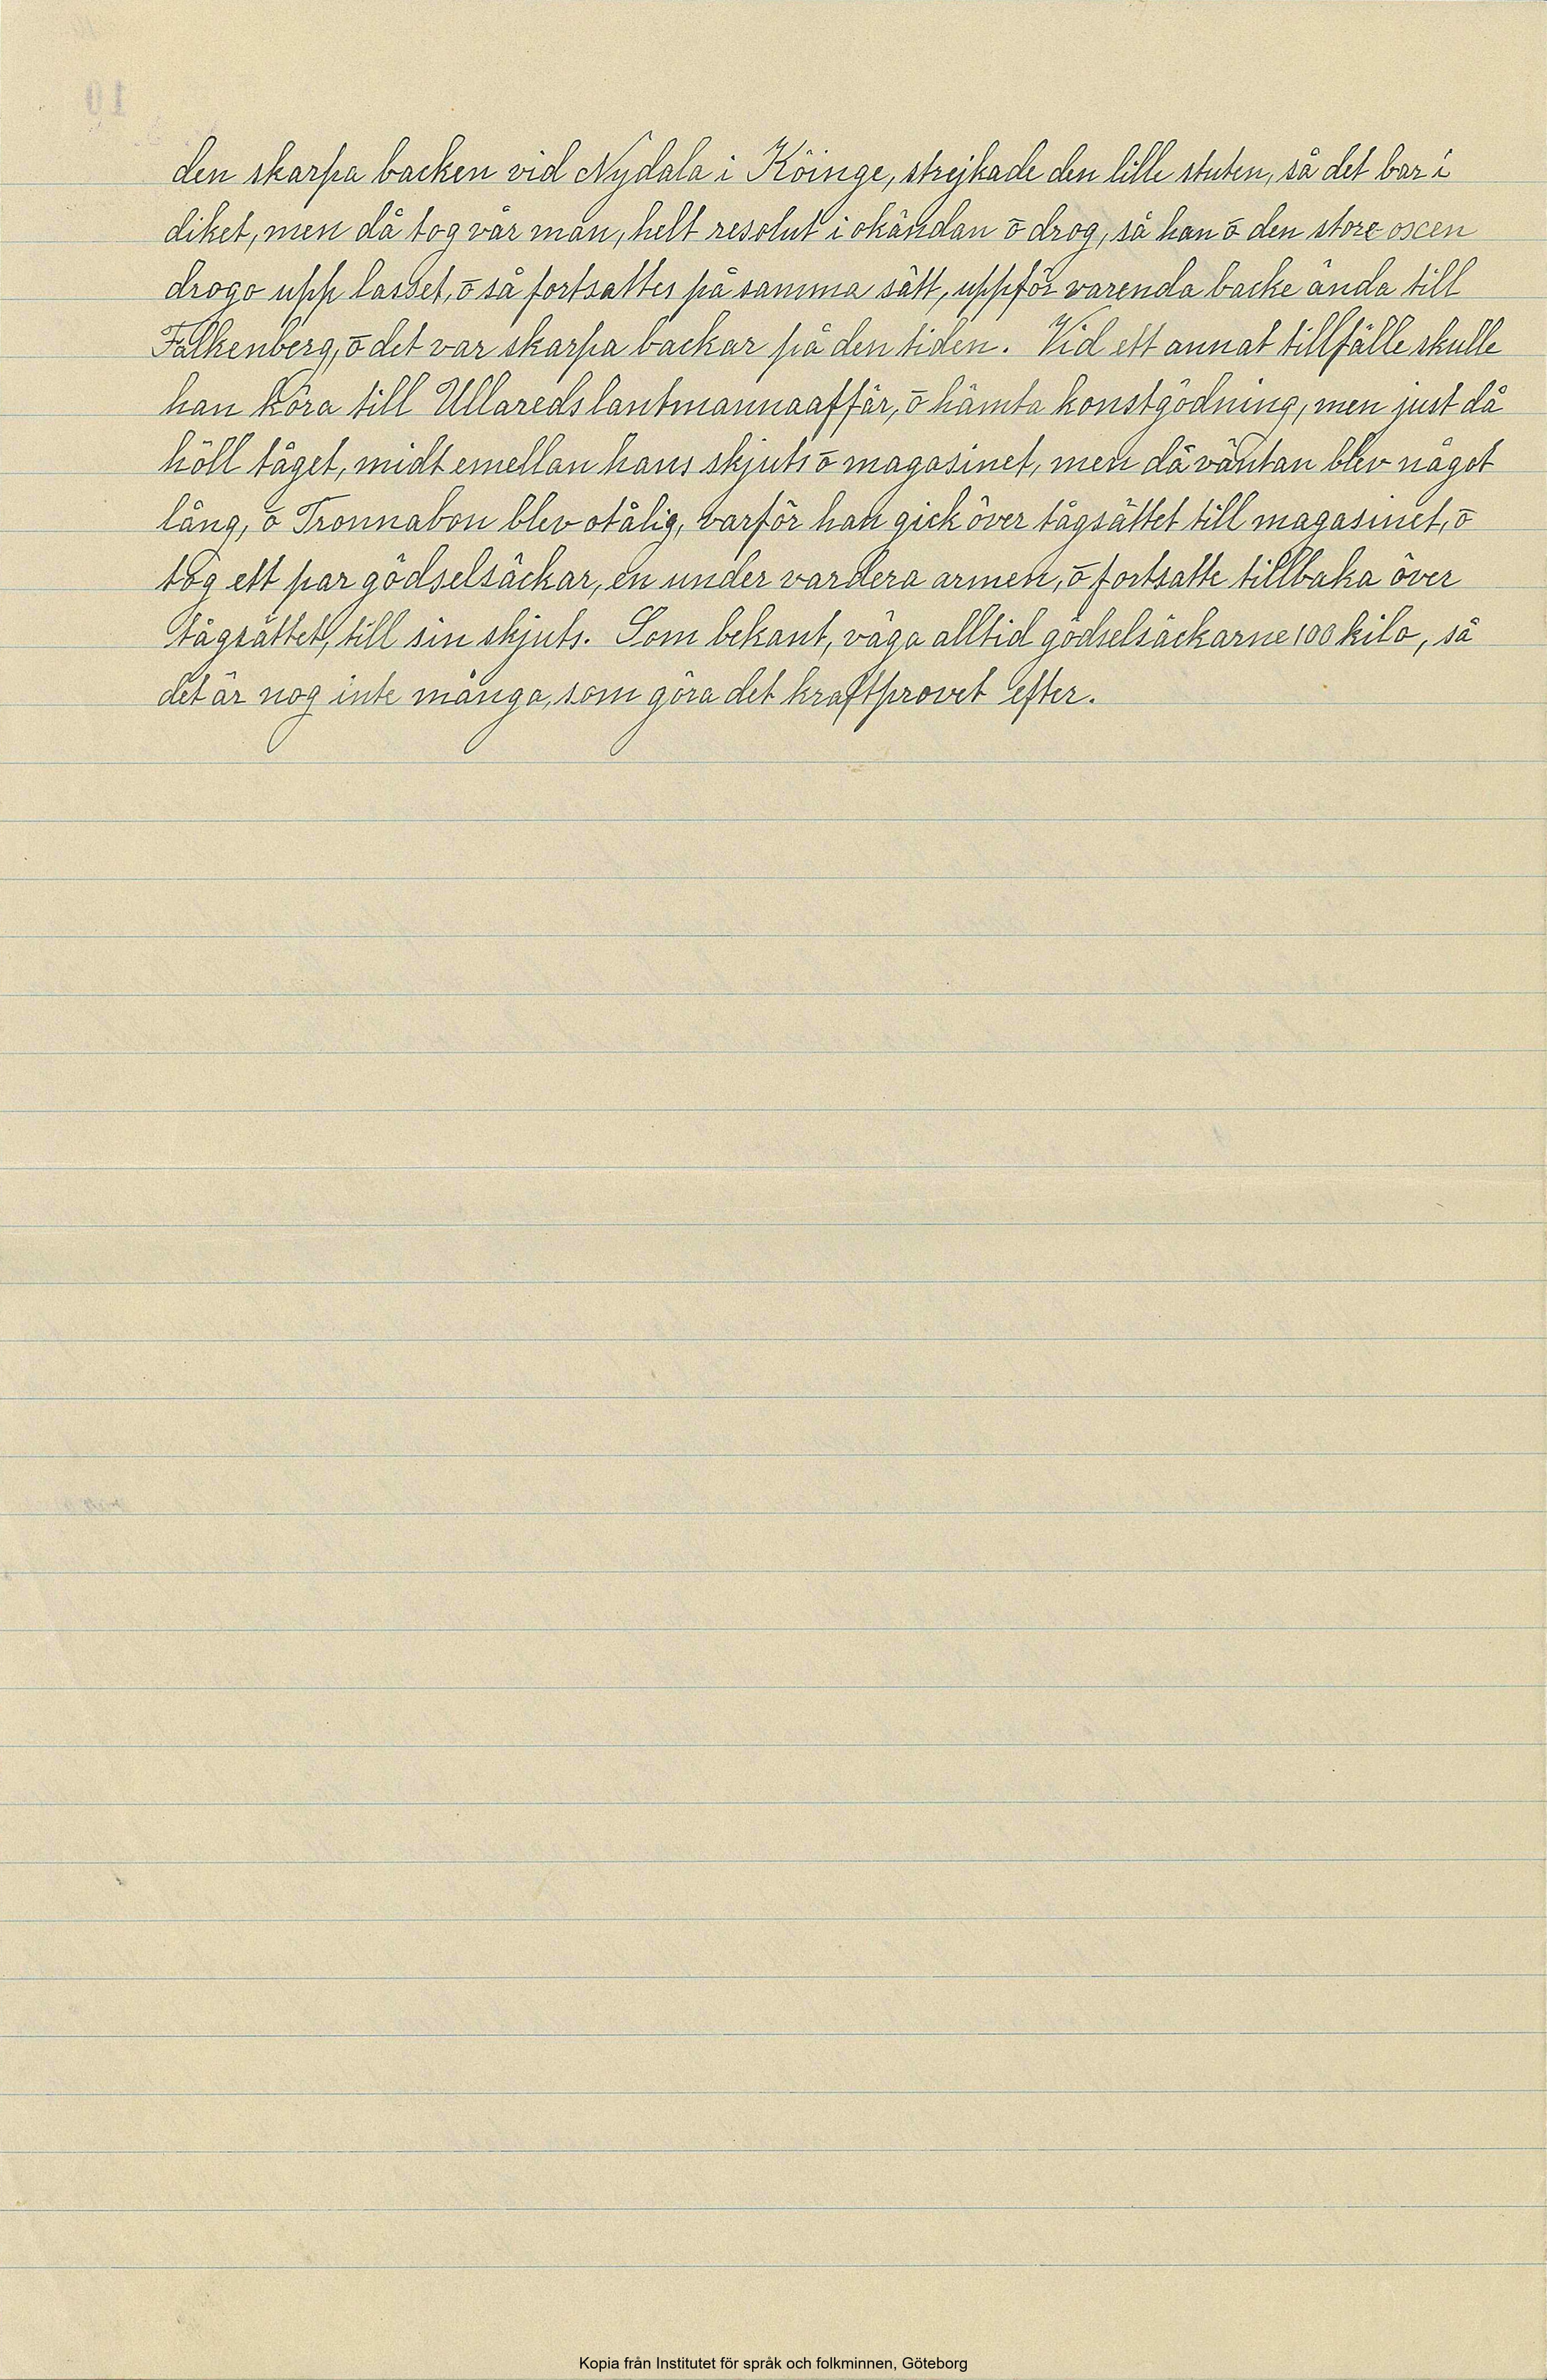 den skarpa backen vid Nydala i Köinge, strejkade den lille stuten, så det bar i
diket, men då tog vår man, helt resolut i okändan ō drog, så han ō den store oxen
drogo upp lasset, ō så fortsattes på samma sätt, uppför varenda backe ända till
Falkenberg, ō det var skarpa backar på den tiden. Vid ett annat tillfälle skulle
han köra till Ullareds lantmannaaffär, ō hämta konstgödning, men just då
höll tåget, midt emellan hans skjuts ō magasinet, men då väntan blev något
lång, ō Tronnabon blev otålig, varför han gick över tågsättet till magasinet, ō
tog ett par gödselsäckar, en under vardera armen, ō fortsatte tillbaka över
tågsättet, till sin skjuts. Som bekant, väga alltid gödselsäckarne 100 kilo, så
det är nog inte många, som göra det kraftprovet efter.
Kopia från Institutet för språk och folkminnen, Göteborg